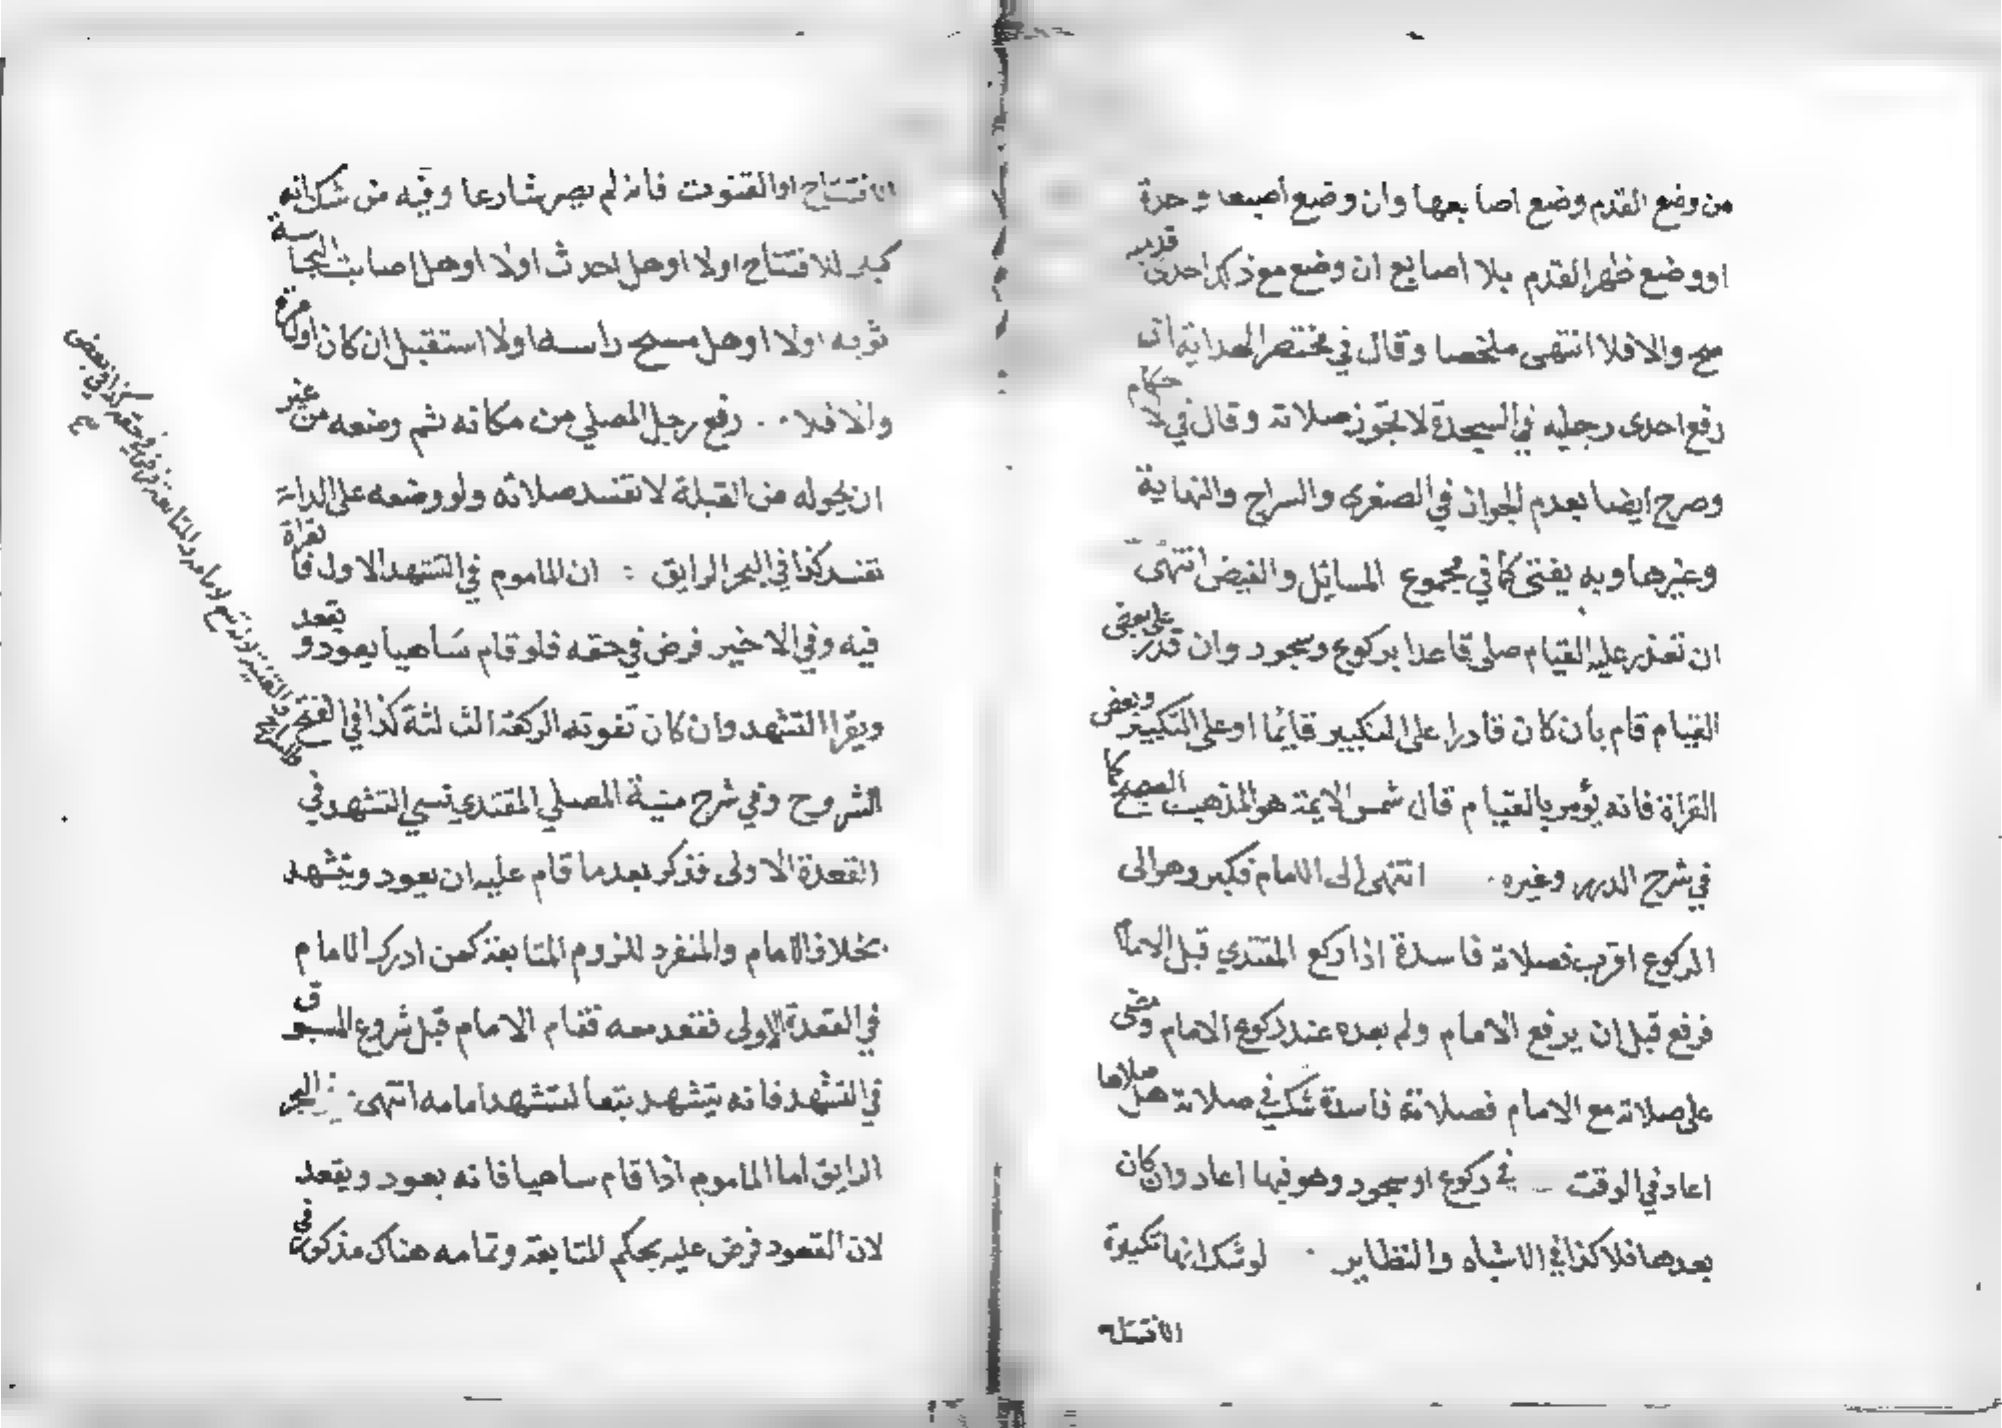 من وضع القدم وضع اصابعها وان وضع أصبعا وحدة
او وضع ظهر القدم بلا اصابع ان وضع مع ذلك احدى قدميه
صح والا فلا انتهى ملخصا وقال في مختصر الهداية ان
رفع احدى رجليه في السجدة لا تجوز صلاته وقال في
وصرح ايضا بعدم الجواز في الصغرى والسراج والنهاية
وغيرها وبه يفتى كما في مجموع المسائل والفيض انتهى
ان تعذر عليه القيام صلى قاعدا بركوع وسجود وان قدر على بعض
القيام قام بأن كان قادرا على التكبير قائما او على التكبير وبعض
القراة فانه يؤمر بالقيام قال شمس الايمة هو المذهب الصحيح كما
في شرح الدرر وغيره انتهى الى الامام فكبر وهو الى
الركوع اقرب فصلاته فاسدة اذا ركع المقتدي قبل الامام
فرفع قبل ان يرفع الامام ولم يعده عند ركوع الامام ومضى
على صلاته مع الامام فصلاته فاسدة شك في صلاته هل صلاها
اعاد في الوقت في ركوع او سجود وهو فيها اعاد وان كان
بعدها فلا كذا في الاشباه والنظاير لو شك انها تكبيرة
الافتتاح
الافتتاح او القنوت فانه لم يصر شارعا وفيه من شك انه
كبر للافتتاح اولا او هل احدث اولا او هل اصابت النجاسة
ثوبه اولا او هل مسح راسه اولا استقبل ان كان اول مرة
والا فلا رفع رجل المصلي من مكانه ثم وضعه من غير
ان يحوله من القبلة لا تفسد صلاته ولو وضعه على الدابة
تفسد كذا في البحر الرايق ان الماموم في التشهد الاول
فيه وفي الاخير فرض في حقه فلو قام ساهيا يعود ويقعد
ويقرا التشهد وان كان تفوته الركعة الثالثة كذا في الفتح
الشروح وفي شرح منية المصلي المقتدي نسي التشهد في
القعدة الاولى فذكر بعدما قام عليه ان يعود ويتشهد
بخلاف الامام والمنفرد للزوم المتابعة كمن ادرك الامام
في القعدة الاولى فقعد معه فقام الامام قبل شروع المسبوق
في التشهد فانه يتشهد تبعا لتشهد امامه انتهى البحر
الرايق اما الماموم اذا قام ساهيا فانه يعود ويقعد
لان القعود فرض عليه بحكم المتابعة وتمامه هناك مذكور